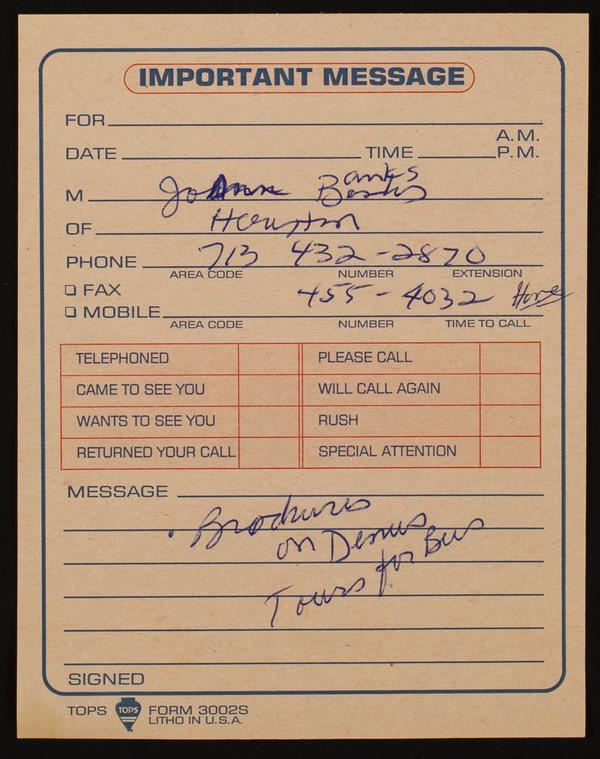 IMPORTANT MESSAGE
FOR
A.M.
DATE TIME P.M.
M JoAnn Banks
OF Houston
PHONE 713 432-2870
AREA CODE NUMBER EXTENSION
☐ FAX 455-4032 Home
☐ MOBILE
AREA CODE NUMBER TIME TO CALL
TELEPHONED PLEASE CALL
CAME TO SEE YOU WILL CALL AGAIN
WANTS TO SEE YOU RUSH
RETURNED YOUR CALL SPECIAL ATTENTION
MESSAGE
. Brochures
on
Tours for Bus
SIGNED
TOPS TOPS FORM 3002S
LITHO IN U.S.A.